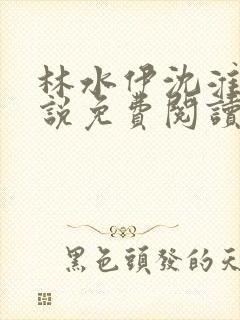 林水伊沈淮
說免費閱讀
黑色頭發的天